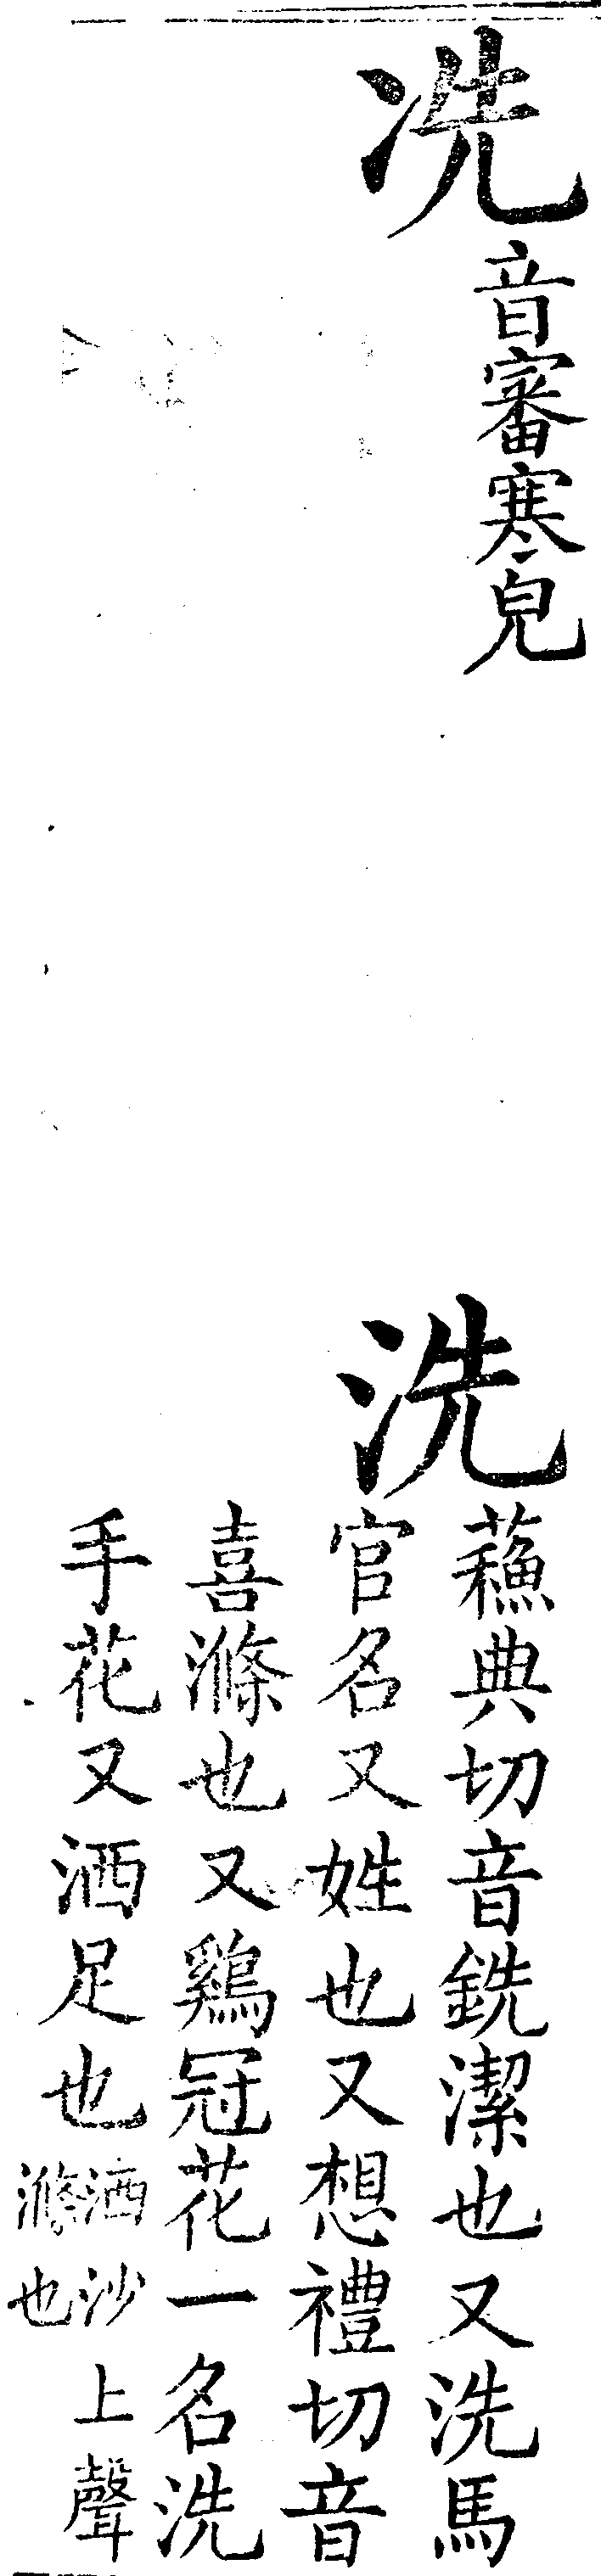 冼
音審寒皃
洗
蘓典切音銑潔也又洗馬
官名又姓也又想禮切音
喜滌也又鷄冠花一名洗
手花又洒足也洒沙上聲
滌也